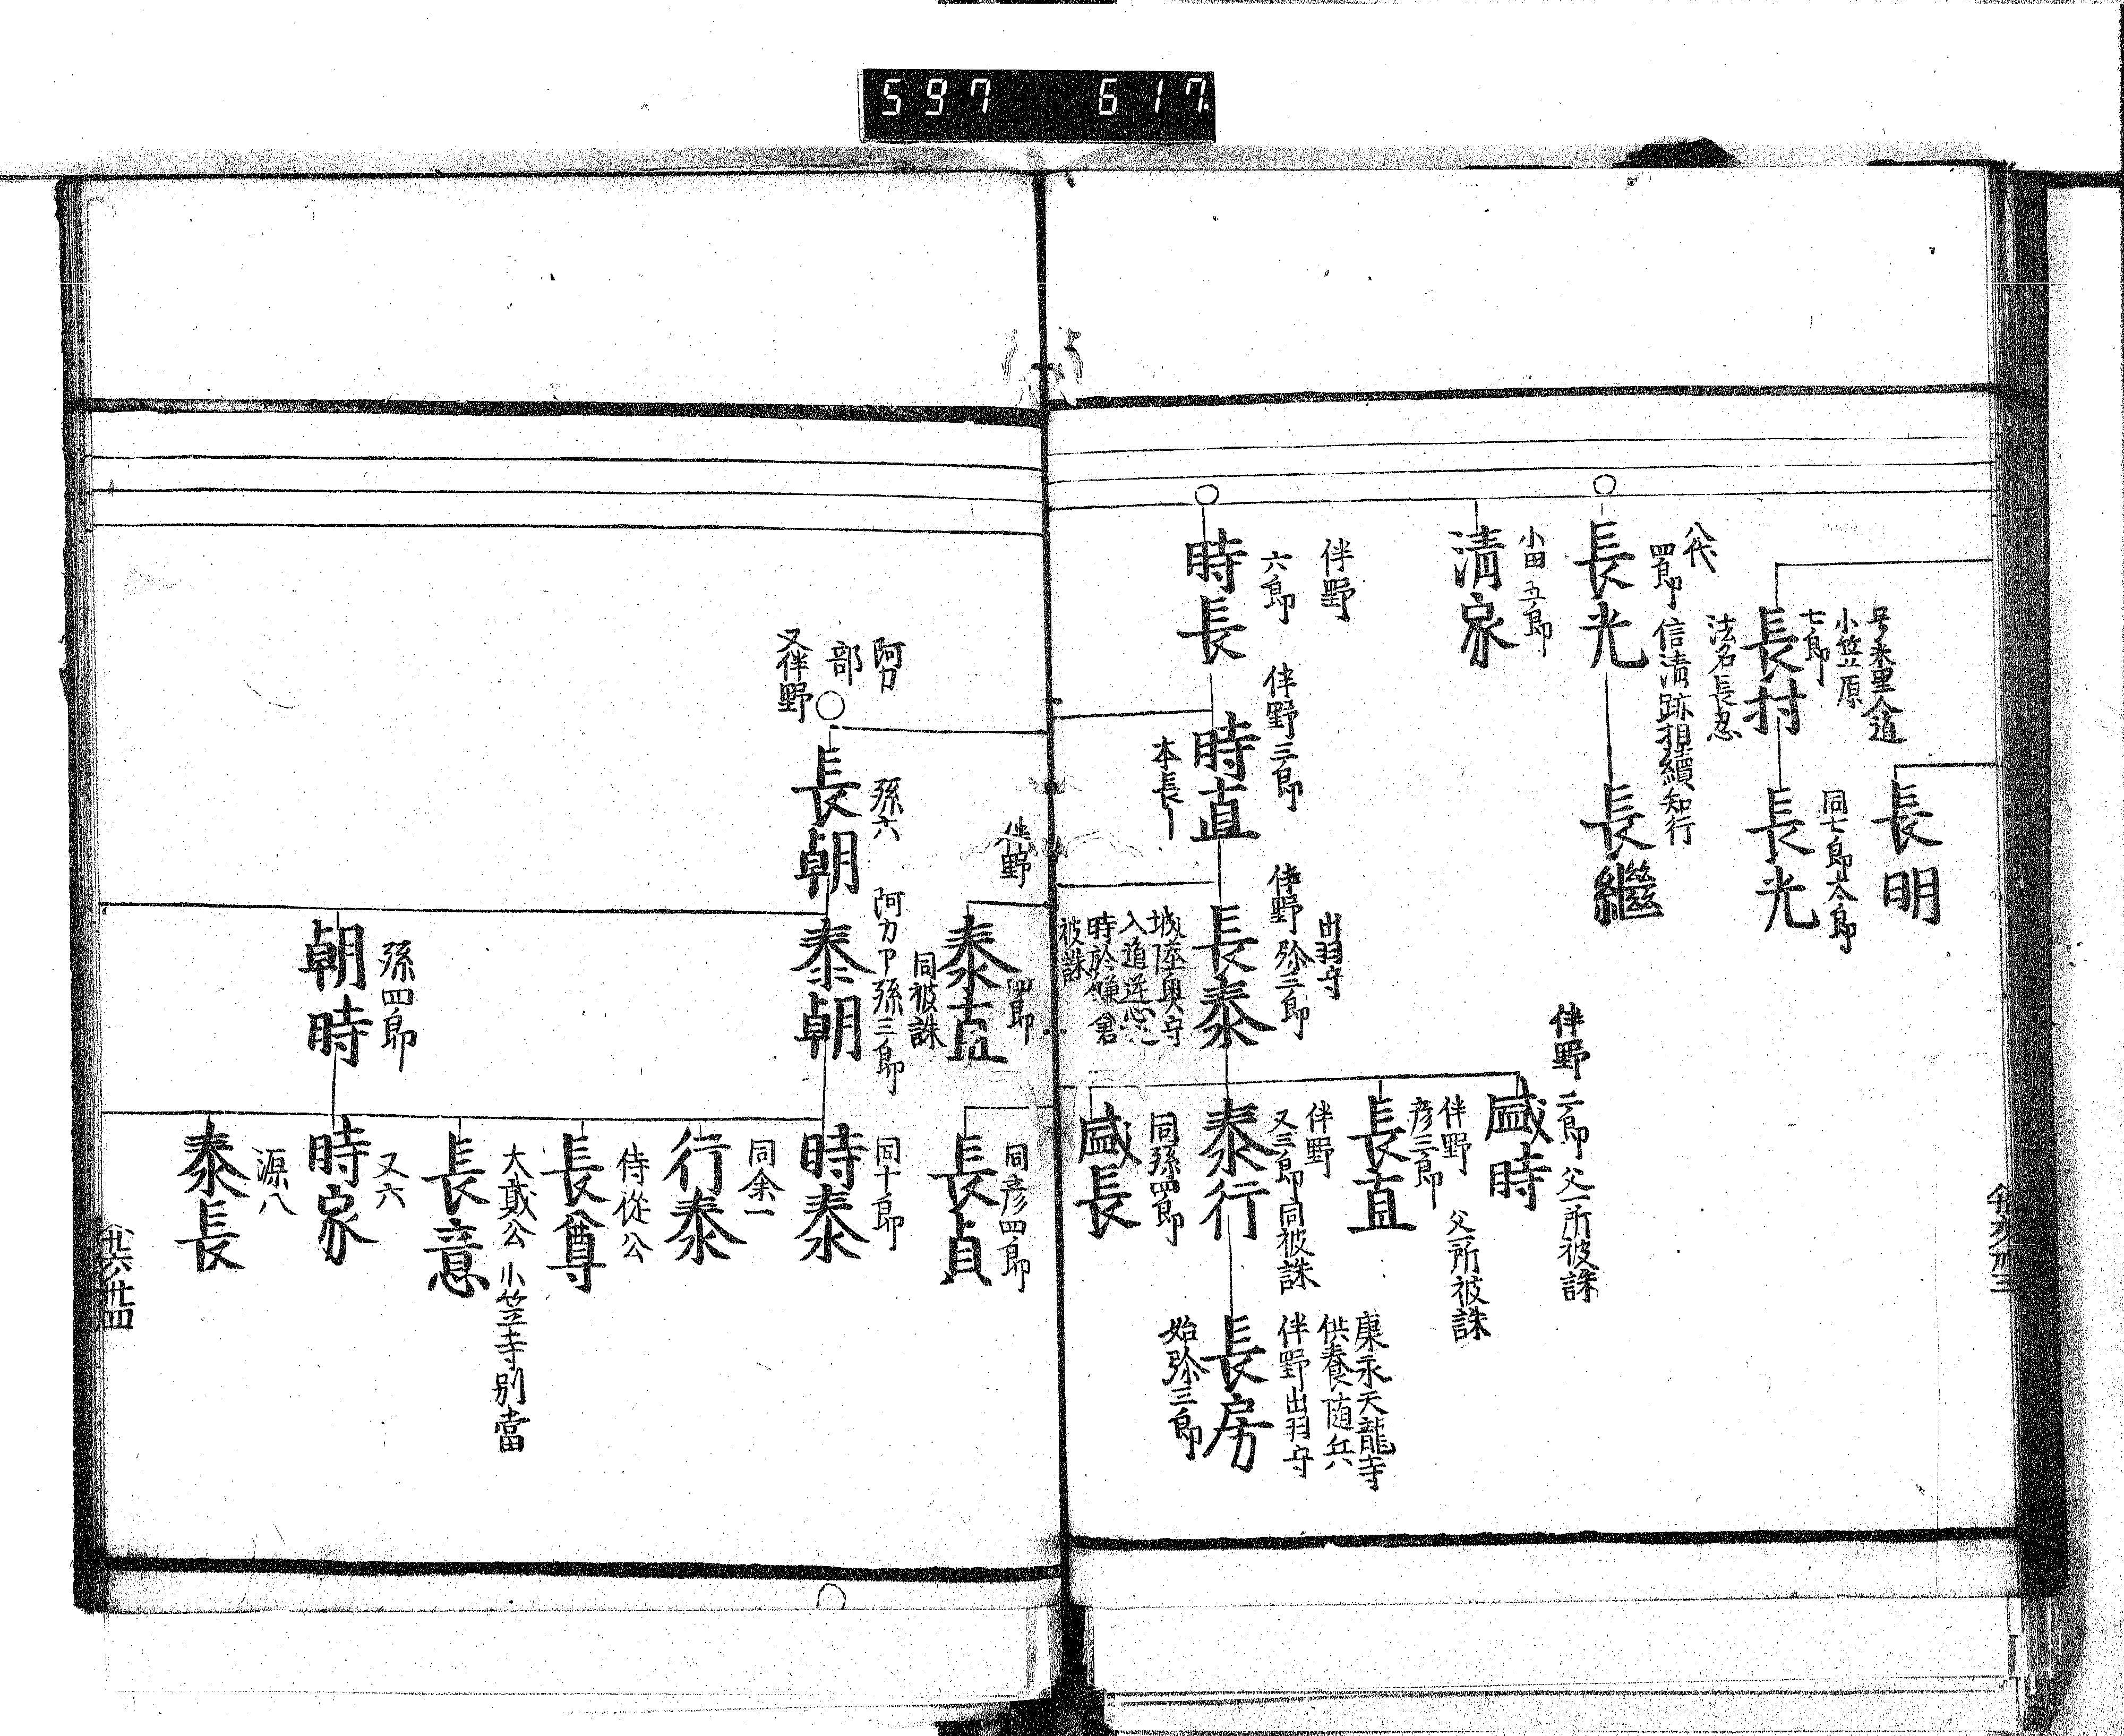 597 617.
長明
号奈里入道
小笠原
七郎
長村
同七郎太郎
長光
法名長忍
八代
四郎
信清跡相續知行
長光
長繼
小田五郎
清家
伴野
六郎
時長
伴野三郎
時直
本長
出羽守
伴野弥三郎
長泰
城陸奥守
入道逆心之
時於鎌倉
被誅
伴野二郎
父一所被誅
盛時
伴野
彦三郎
父一所被誅
長直
伴野
又三郎同被誅
泰行
康永天龍寺
供養随兵
伴野出羽守
長房
始弥三郎
同孫四郎
盛長
伴野
四郎
泰直
同被誅
同彦四郎
長貞
阿刀
部
又伴野
孫六
長朝
阿刀卩孫三郎
泰朝
同十郎
時泰
同余一
行泰
侍從公
長尊
大貳公
小笠寺別當
長意
孫四郎
朝時
又六
時家
源八
泰長